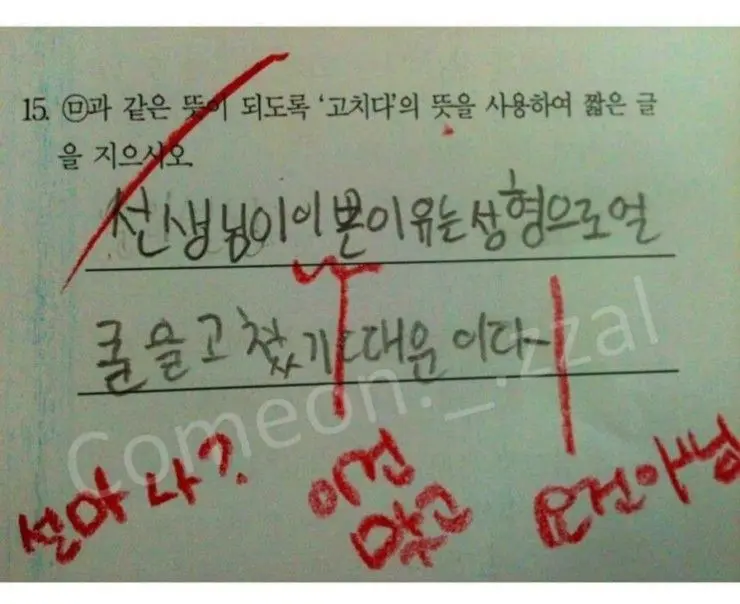 15. ㉤과 같은 뜻이 되도록 '고치다'의 뜻을 사용하여 짧은 글
을 지으시오.
선생님이 이쁜이유는 성형으로 얼
굴을 고쳤기때문이다~
설마 나?
이건
맞고
요건아님
Comeon._.zzal